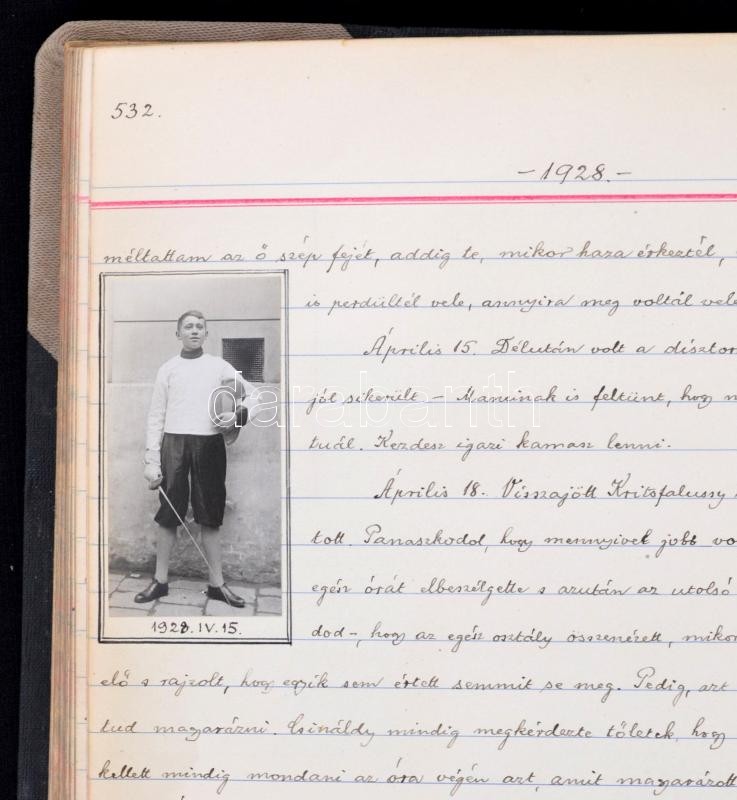 532.
-1928.-
méltattam az ő szép fejét, addig te, mikor haza érkeztél,
is perdültél vele, annyira meg voltál vele
Április 15. Délután volt a dísztor
jól sikerült - Maminak is feltünt, hogy
tuál. Kezdesz igazi kamasz lenni.
Április 18. Visszajött Kritsfalussy
tott. Panaszkodol, hogy mennyivel jobb vo
egész órát elbeszélgette s azután az utolsó
dod-, hogy az egész osztály összenézett, mikor
1928.IV.15.
elő s rajzolt, hogy egyik sem értett semmit se meg. Pedig, azt
tud magyarázni. Csináldy mindig megkérdezte tőletek, hogy
kellett mindig mondani az óra végén azt, amit magyarázott
darabanth